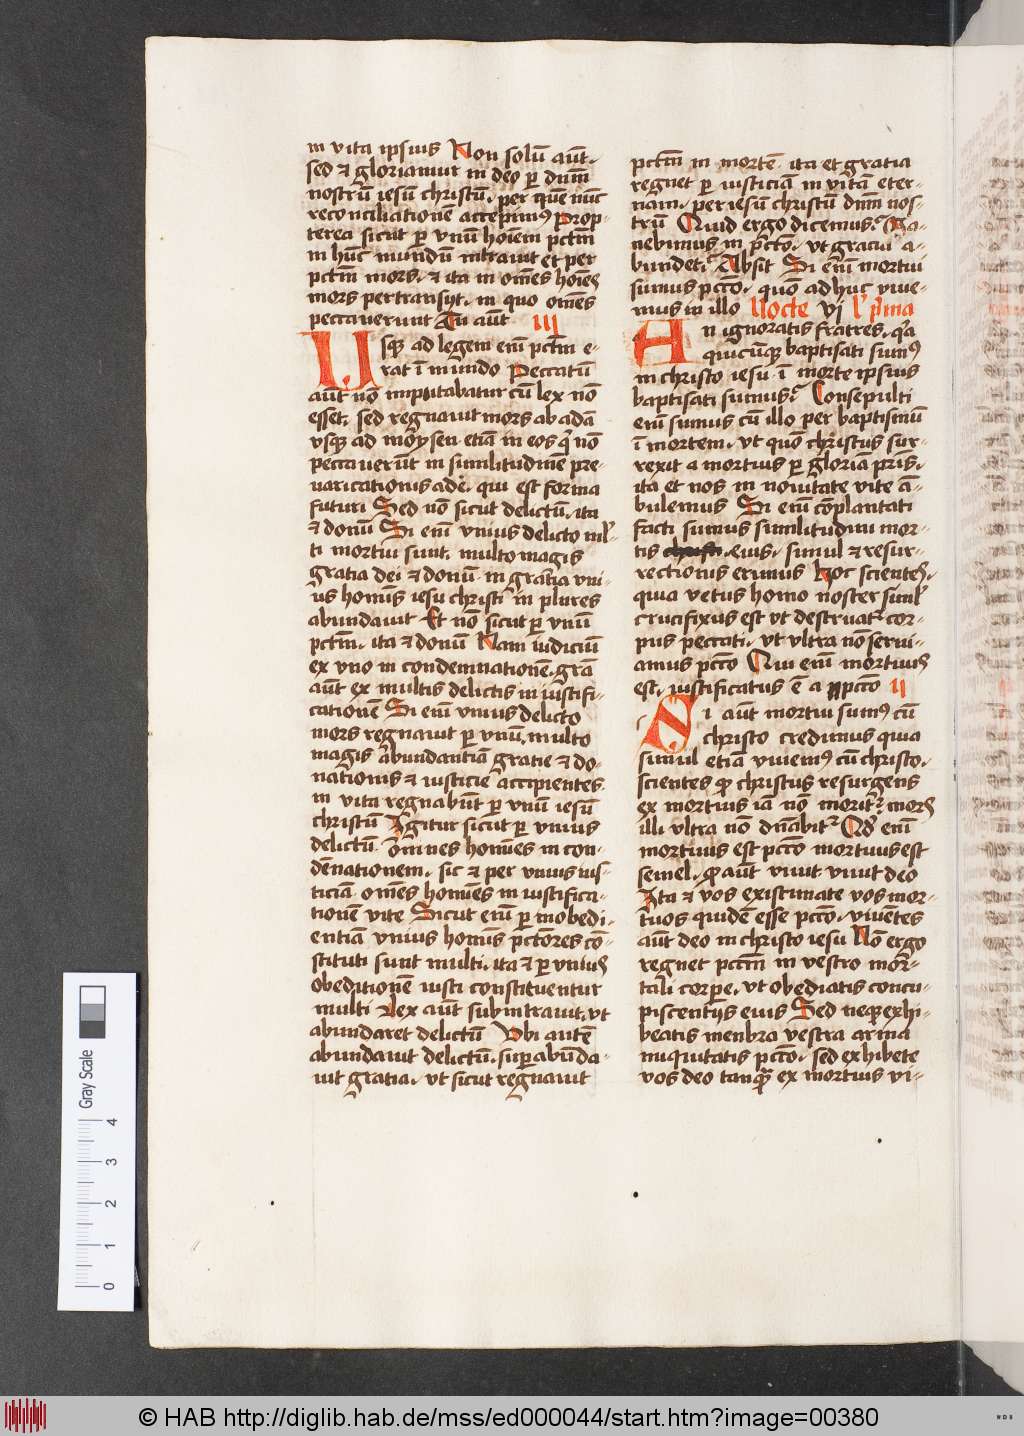 in vita ipsius Non solū aūt·
sed ⁊ gloriamur in deo ꝑ dn̄m
nostrū iesū christū· per quē nūc
reconciliationē accepimꝰ Prop-
terea sicut ꝑ vnū hoīem pctm̄
in hūc mundū intrauit et per
pctm̄ mors· ⁊ ita in om̄es hoīes
mors pertransijt· in quo om̄es
peccauerunt An aūt III
Usqꝫ ad legem eni̅ pctm̄ e-
rat ī mundo Peccatū
aūt nō imputabatur cū lex nō
esset· sed regnauit mors ab adā
vsqꝫ ad moysen etiā in eos qͥ nō
peccauerūt in similitudinē pre-
uaricationis ade· qui est forma
futuri Sed nō sicut delictū· ita
⁊ donū Si enī vnius delicto ml̓-
ti mortui sunt· multo magis
gratia dei ⁊ donū in gratia vni-
us hoīnis iesu christi in plures
abundauit Et nō sicut ꝑ vnū
pctm̄· ita ⁊ donū Nam iudiciū
ex vno in condemnationē· grā
aūt ex multis delictis in iustifi-
cationē Si enī vnius delicto
mors regnauit ꝑ vnū· multo
magis abundantiā gratie ⁊ do-
nationis ⁊ iusticie accipientes
in vita regnabūt ꝑ vnū iesū
christū Igitur sicut ꝑ vnius
delictū· in omnes hoīes in con-
dēnationem· sic ⁊ per vnius ius-
ticiā· in om̄es hoīes in iustifica-
tionē vite Sicut enī ꝑ inobedi-
entiā vnius hoīnis pctōres cō-
stituti sunt multi· ita ⁊ ꝑ vniuꝰ
obeditionē iusti constituentur
multi Lex aūt subintrauit· vt
abundaret delictū Vbi autē
abundauit delictū· suꝑabūda-
uit gratia· vt sicut regnauit
pctm̄ in mortē· ita et gratia
regnet ꝑ iusticiā in vitā eter-
nam· per iesū christū dn̄m nos-
trū Quid ergo dicemus? Ma-
nebimus in pctō· vt gracia a-
bundet? Absit Si enī mortui
sumus pctō· quō adhuc viue-
mus in illo Nocte vj l̓ pͥma
An ignoratis fratres· qͥa
quicūqꝫ baptisati sumꝰ
in christo iesu· ī morte ipsius
baptisati sumus? Consepulti
enī sumus cū illo per baptismū
ī mortem· vt quō christus sur-
rexit a mortuis ꝑ gloriā pr̄is·
ita et nos in nouitate vite ā-
bulemus Si enī cōplantati
facti sumus similitudini mor-
tis christi· eius· simul ⁊ resur-
rectionis erimus Hoc scientes·
quia vetus homo noster simul
crucifixus est vt destruat᷑ cor-
pus peccati· vt vltra nō serui-
amus pctō Qui enī mortuus
est· iustificatus ē a pctō II
Si aūt mortui sumꝰ cū
christo credimus quia
simul etiā viuemꝰ cū christo·
scientes qꝫ christus resurgens
ex mortuis iā nō morit᷑ mors
illi vltra nō dn̄abit᷑ Qd̓ enī
mortuus est pctō mortuus est
semel· qd aūt viuit· viuit deo
Ita ⁊ vos existimate vos mor-
tuos quidē esse pctō· viuētes
aūt deo in christo iesu Nō ergo
regnet pctm̄ in vestro mor-
tali corpe· vt obediatis concu-
piscentijs eius Sed neqꝫ exhi-
beatis menbra vestra arma
iniquitatis pctō· sed exhibete
vos deo tanqꝫ ex mortuis vi-
Gray Scale
0 1 2 3 4
© HAB http://diglib.hab.de/mss/ed000044/start.htm?image=00380